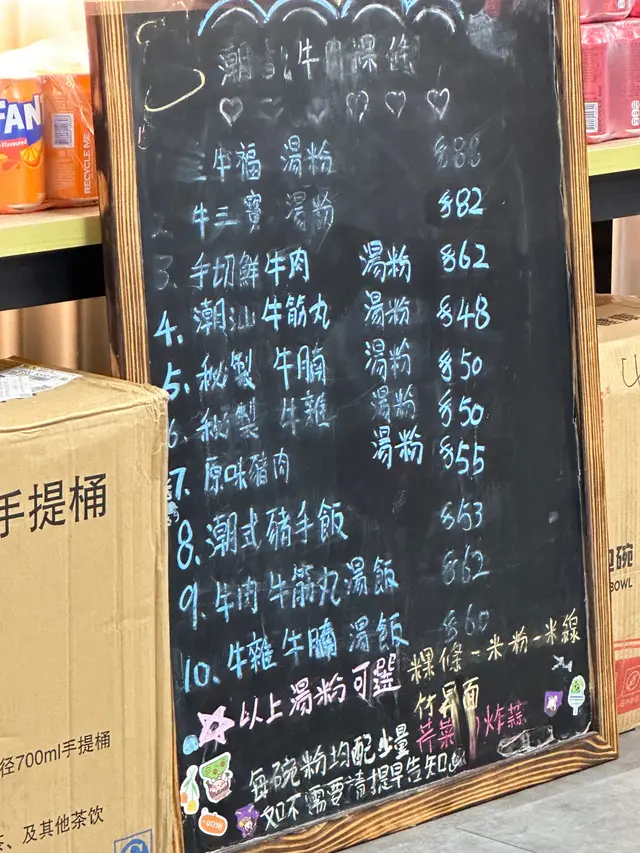 潮式牛肉粿條
三牛福 湯粉 $88
2. 牛三寶 湯粉 $82
3. 手切鮮牛肉 湯粉 $62
4. 潮汕牛筋丸 湯粉 $48
5. 秘製 牛腩 湯粉 $50
6. 秘製 牛雜 湯粉 $50
7. 原味豬肉 湯粉 $55
8. 潮式豬手飯 $53
9. 牛肉牛筋丸湯飯 $62
10. 牛雜牛腩湯飯 $60
以上湯粉可選 粿條-米粉-米線
竹昇面
每碗粉均配少量 芹菜 炸蒜
如不需要請提早告知
FAN
RECYCLE ME
手提桶
径700ml手提桶
及其他茶饮
碗
BOWL